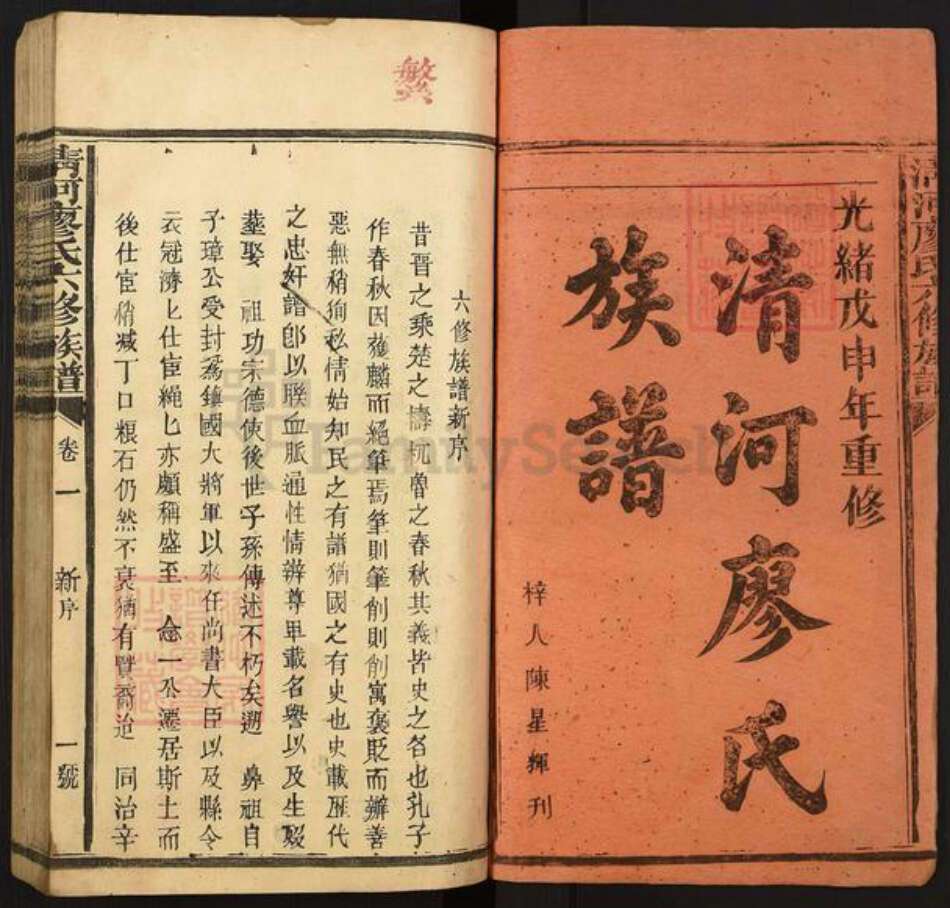 清河廖氏六修族譜
光緒戊申年重修
清河廖氏
族譜
梓人陳星輝刊
六修族譜新序
昔晉之乘楚之檮杌魯之春秋其義皆史之各也孔子
作春秋因獲麟而絕筆焉筆則筆削則削寓褒貶而辨善
惡無稍徇私情始知民之有譜猶國之有史也史載歷代
之忠奸譜卽以聯血脈通性情辨尊卑載名譽以及生殁
塟娶 祖功宗德使後世子孫傳述不朽矣遡 鼻祖自
子璋公受封為鎮國大將軍以來任尚書大臣以及縣令
衣冠濟匕仕宦繩匕亦頗稱盛至 念一公遷居斯土而
後仕宦稍減丁口粮石仍然不衰猶有賢裔迨 同治辛
清河廖氏六修族譜
卷一
新序
一號
繁
FamilySearch